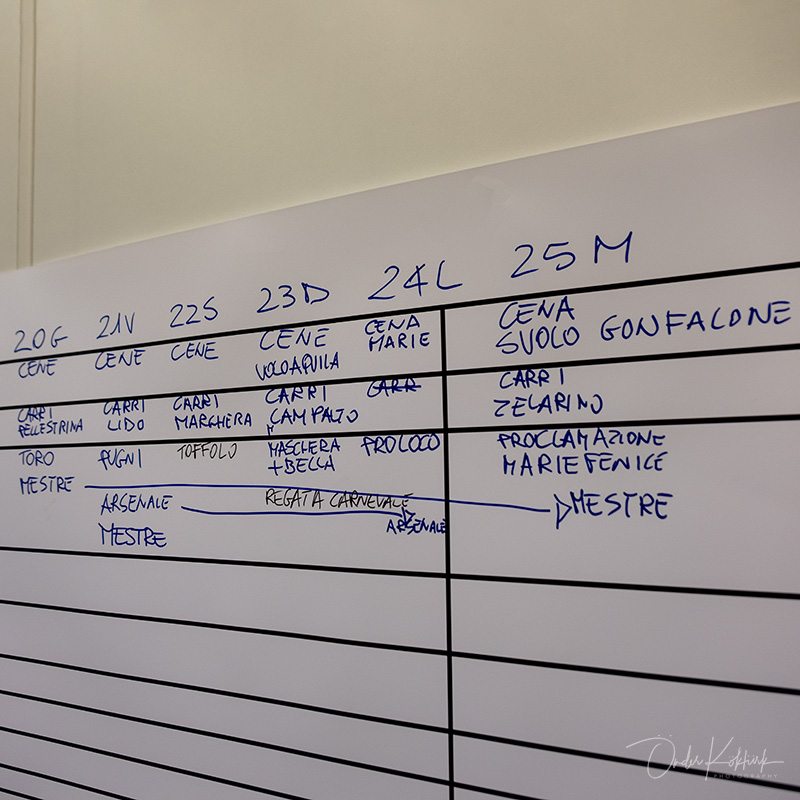 20G 21V 22S 23D 24L 25M
CENE CENE CENE CENE CENA CENA
VOLO AQUILA MARIE SVOLO GONFALONE
CARRI CARRI CARRI CARRI CARR CARRI
PELLESTRINA LIDO MARGHERA CAMPALTO ZELARINO
TORO PUGNI TOFFOLO MASCHERA PROLOCO PROCLAMAZIONE
+BELLA MARIE FENICE
MESTRE ARSENALE REGATA CARNEVALE MESTRE
MESTRE ARSENALE
Önder Köktürk
PHOTOGRAPHY